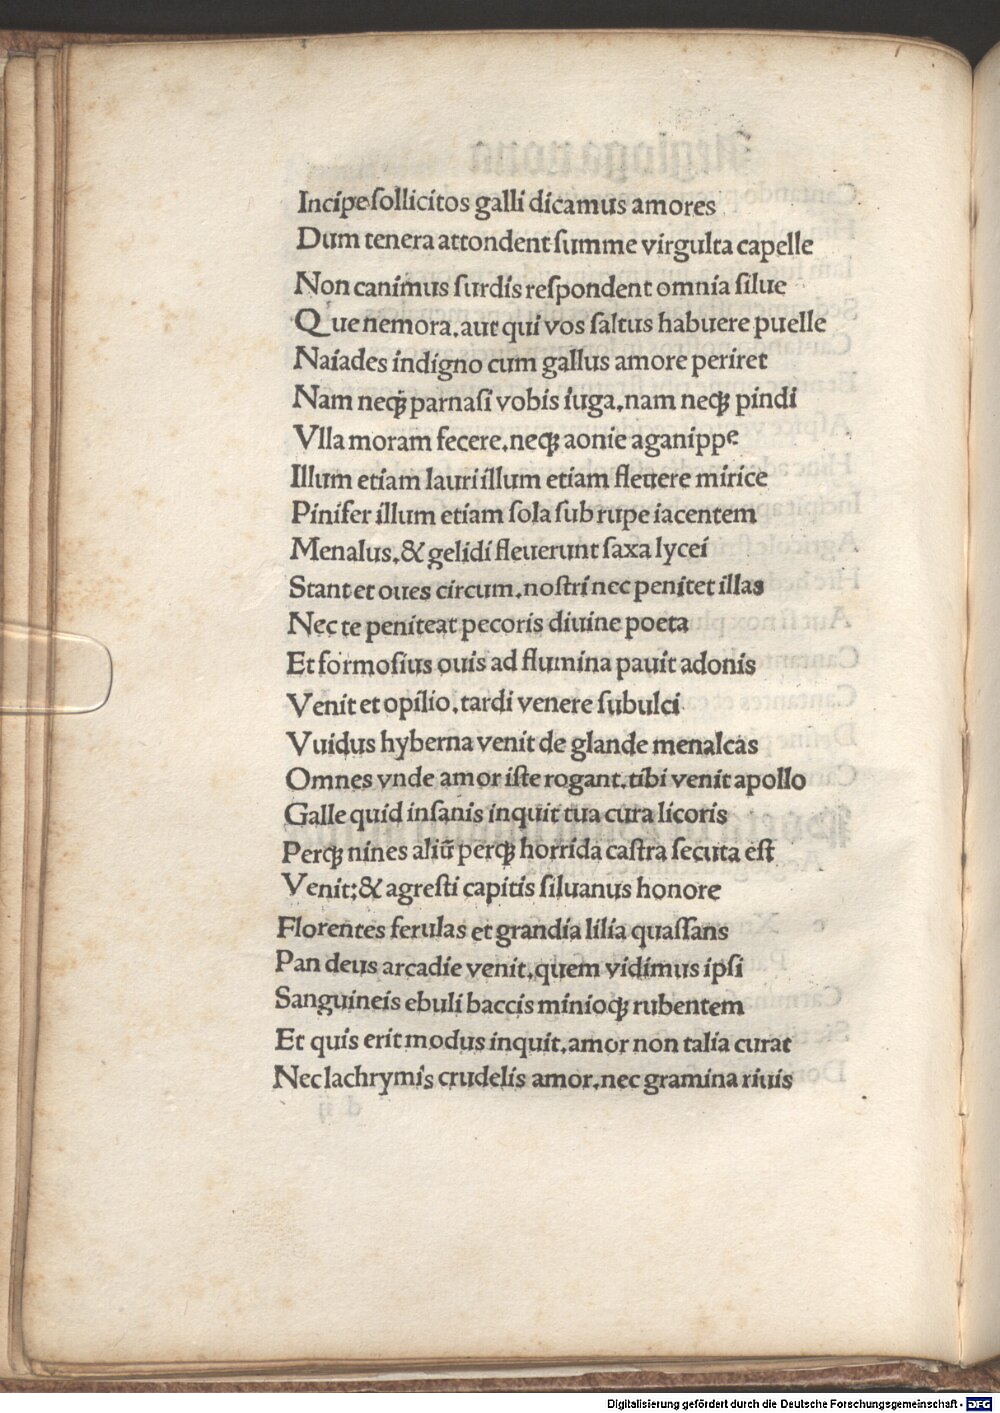 Incipe sollicitos galli dicamus amores
Dum tenera attondent summe virgulta capelle
Non canimus surdis respondent omnia silue
Que nemora.aut qui vos saltus habuere puelle
Naiades indigno cum gallus amore periret
Nam neqꝫ parnasi vobis iuga.nam neqꝫ pindi
Vlla moram fecere.neqꝫ aonie aganippe
Illum etiam lauri illum etiam fleuere mirice
Pinifer illum etiam sola sub rupe iacentem
Menalus.& gelidi fleuerunt saxa lycei
Stant et oues circum.nostri nec penitet illas
Nec te peniteat pecoris diuine poeta
Et formosius ouis ad flumina pauit adonis
Venit et opilio.tardi venere subulci
Vuidus hyberna venit de glande menalcas
Omnes vnde amor iste rogant.tibi venit apollo
Galle quid insanis inquit tua cura licoris
Perqꝫ nines aliū perqꝫ horrida castra secuta est
Venit:& agresti capitis siluanus honore
Florentes ferulas et grandia lilia quassans
Pan deus arcadie venit.quem vidimus ipsi
Sanguineis ebuli baccis minioqꝫ rubentem
Et quis erit modus inquit.amor non talia curat
Nec lachrymis crudelis amor.nec gramina riuis
Digitalisierung gefördert durch die Deutsche Forschungsgemeinschaft - DFG